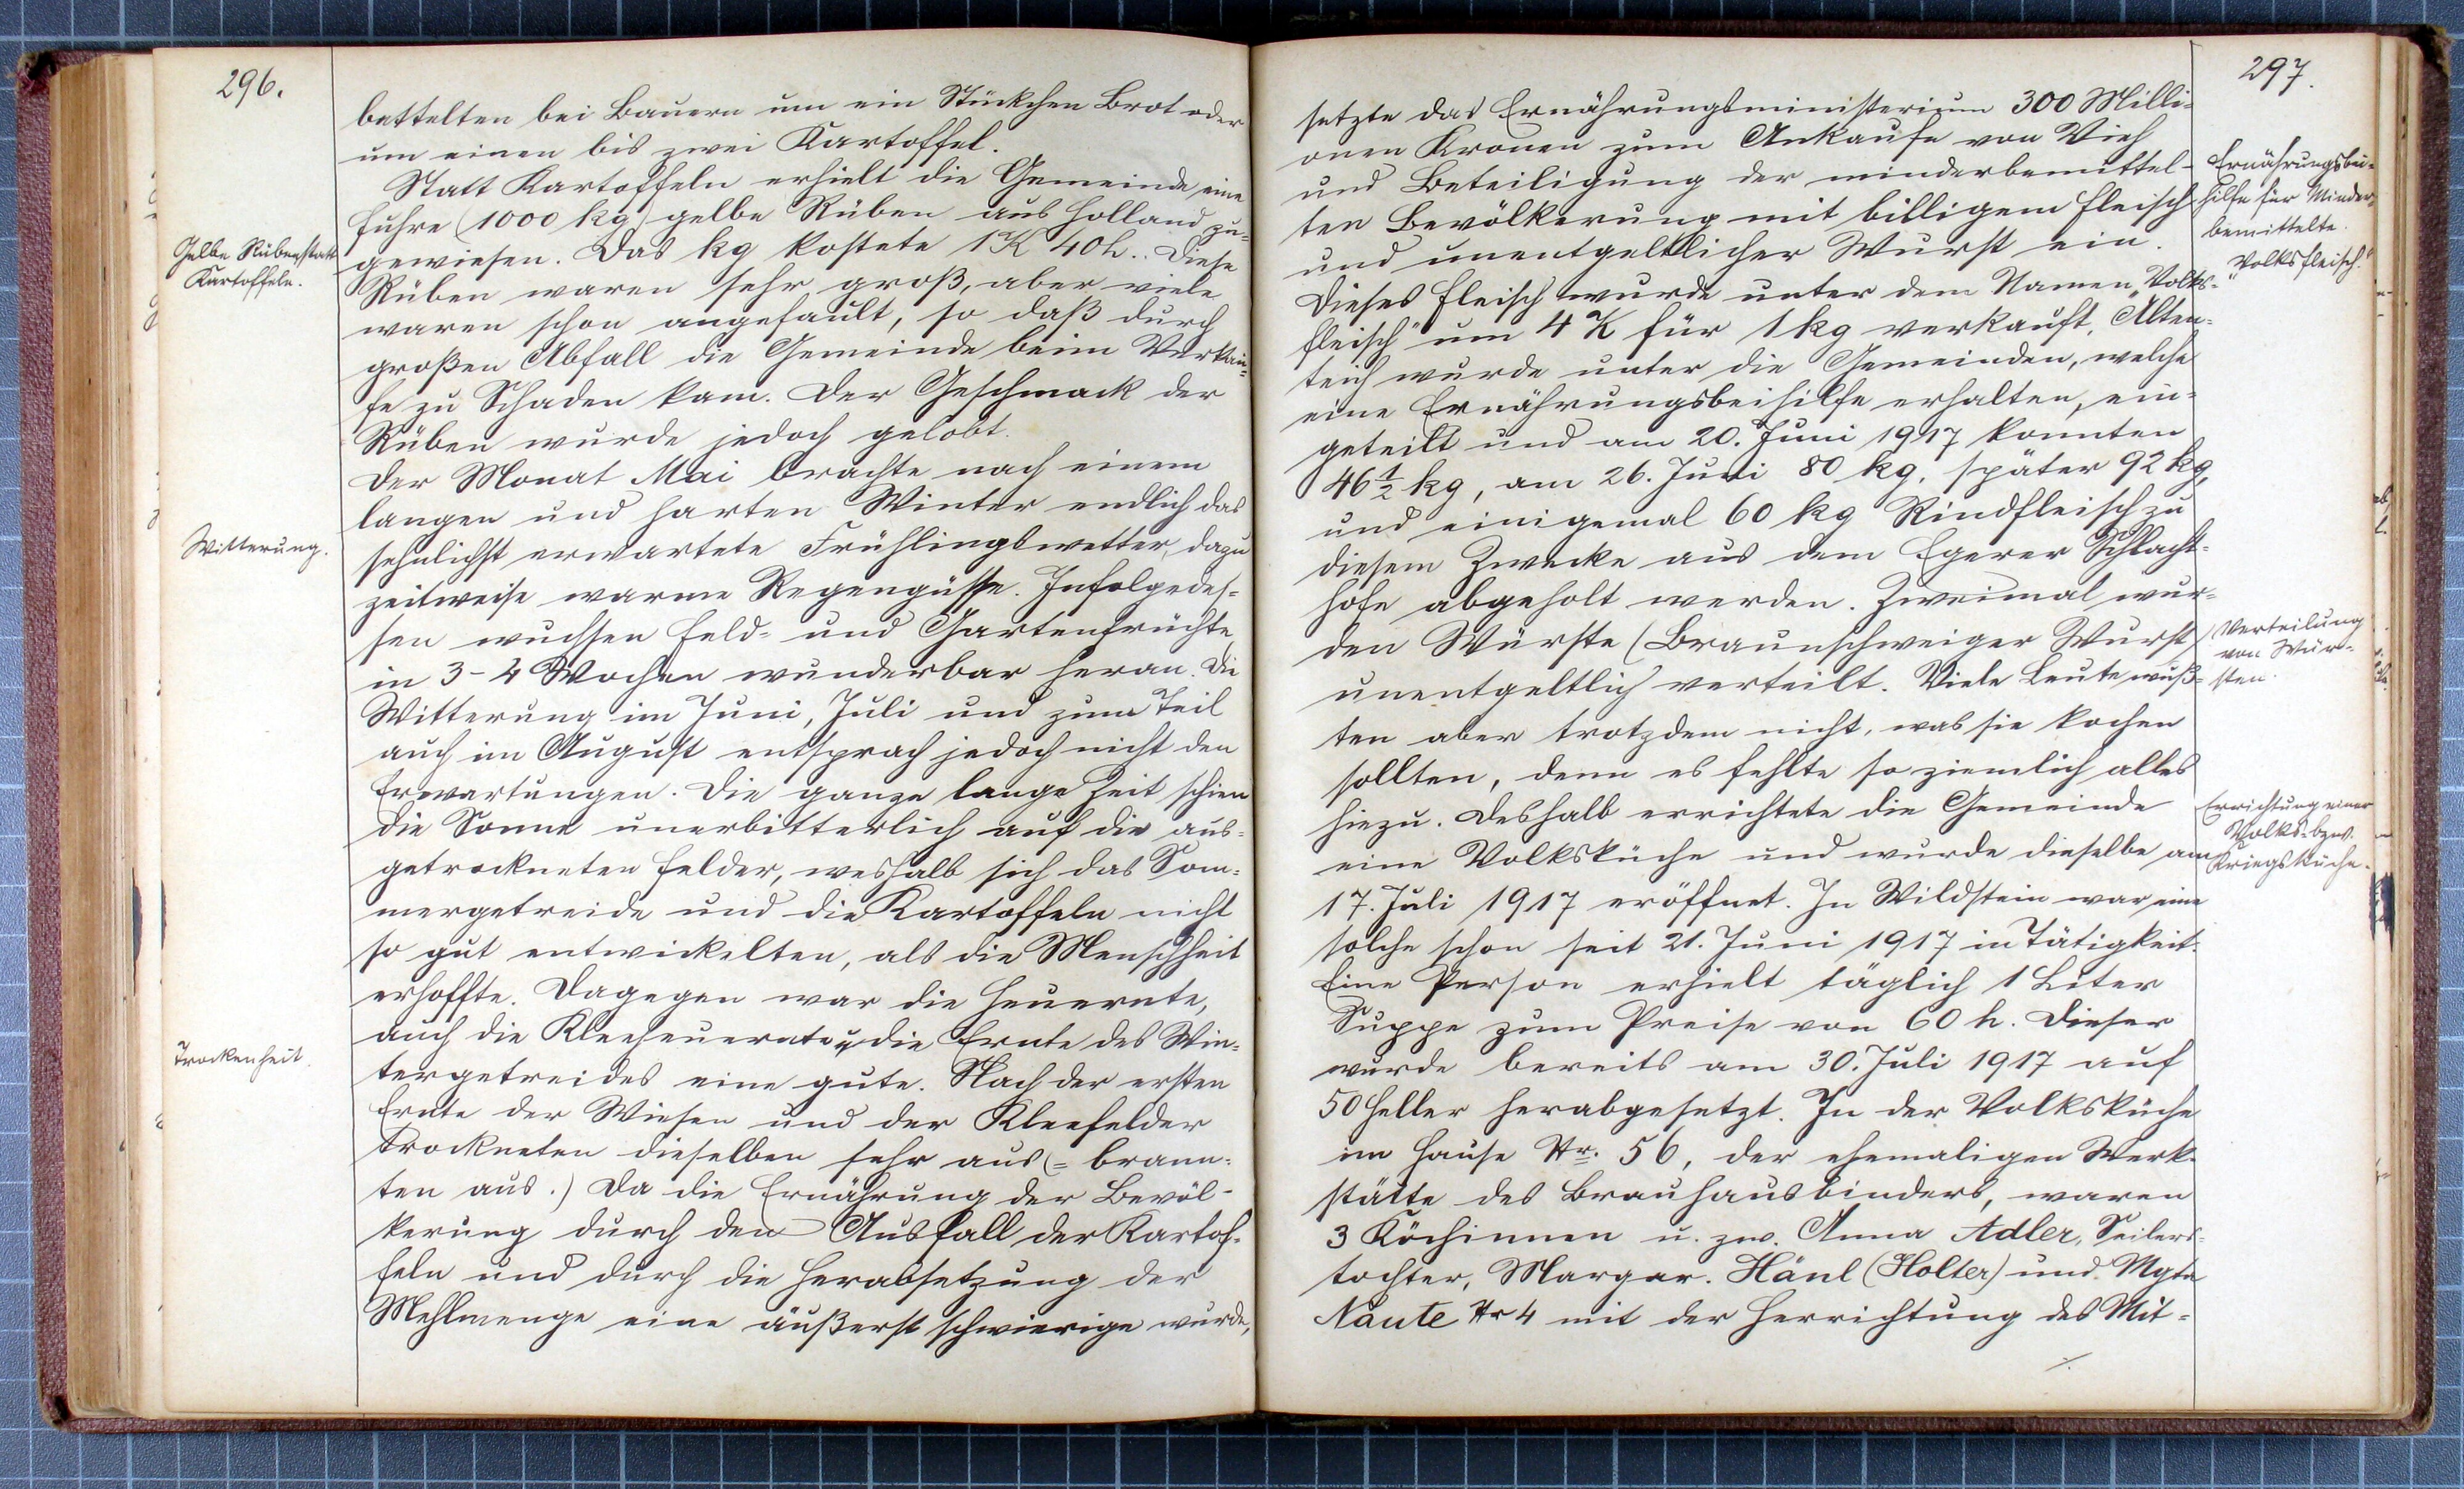 296.
bettelten bei Bauern um ein Stückchen Brot oder
um einen bis zwei Kartoffel.
Statt Kartoffeln erhielt die Gemeinde eine
Fuhre (1000 kg) gelbe Rüben aus Holland zu-
Gelbe Rüben statt
Kartoffeln.
gewiesen. Das kg kostete 1 K 40 h. Diese
Rüben waren sehr groß, aber viele
waren schon angefault, so daß durch
großen Abfall die Gemeinde beim Verkau-
fe zu Schaden kam. Der Geschmack der
Rüben wurde jedoch gelobt.
Der Monat Mai brachte nach einem
langen und harten Winter endlich das
Witterung.
sehnlichst erwartete Frühlingswetter, dazu
zeitweise warme Regengüsse. Infolgedes-
sen wuchsen Feld- und Gartenfrüchte
in 3-4 Wochen wunderbar heran. Die
Witterung im Juni, Juli und zum Teil
auch im August entsprach jedoch nicht den
Erwartungen. Die ganze lange Zeit schien
die Sonne unerbitterlich auf die aus-
getrockneten Felder, weshalb sich das Som-
mergetreide und die Kartoffeln nicht
so gut entwickelten, als die Menschheit
erhoffte. Dagegen war die Heuernte,
auch die Kleeheuernte u. die Ernte des Win-
Trockenheit.
tergetreides eine gute. Nach der ersten
Ernte der Wiesen und der Kleefelder
trockneten dieselben sehr aus (= brann-
ten aus.) Da die Ernährung der Bevöl-
kerung durch den Ausfall der Kartof-
feln und durch die Herabsetzung der
Mehlmenge eine äußerst schwierige wurde,
297.
setzte das Ernährungsministerium 300 Milli-
onen Kronen zum Ankaufe von Vieh
und Beteiligung der minderbemittel-
ten Bevölkerung mit billigem Fleisch
und unentgeltlicher Wurst ein.
Ernährungsbei-
hilfe für Minder-
bemittelte.
"Volksfleisch."
Dieses Fleisch wurde unter dem Namen „Volks-
fleisch" um 4 K für 1 kg verkauft. Alten-
teich wurde unter die Gemeinden, welche
eine Ernährungsbeihilfe erhalten, ein-
geteilt und am 20. Juni 1917 konnten
46 1/2 kg, am 26. Juni 80 kg, später 92 kg,
und einigemal 60 kg Rindfleisch zu
diesem Zwecke aus dem Egerer Schlacht-
hofe abgeholt werden. Zweimal wur-
den Würste (Braunschweiger Wurst)
unentgeltlich verteilt. Viele Leute wuß-
Verteilung
von Wür-
sten.
ten aber trotzdem nicht, was sie kochen
sollten, denn es fehlte so ziemlich alles
hiezu. Deshalb errichtete die Gemeinde
eine Volksküche und wurde dieselbe am
Errichtung einer
Volks- bzw.
Kriegsküche.
17. Juli 1917 eröffnet. In Wildstein war eine
solche schon seit 21. Juni 1917 in Tätigkeit.
Eine Person erhielt täglich 1 Liter
Suppe zum Preise von 60 h. Dieser
wurde bereits am 30. Juli 1917 auf
50 Heller herabgesetzt. In der Volksküche
im Hause Nr. 56, der ehemaligen Werk-
stätte des Brauhausbinders, waren
3 Köchinnen u. zw. Anna Adler, Seilers-
tochter, Margar. Hänl (Holter) und Mgta
Naute Nr 4 mit der Herrichtung des Mit-
./.